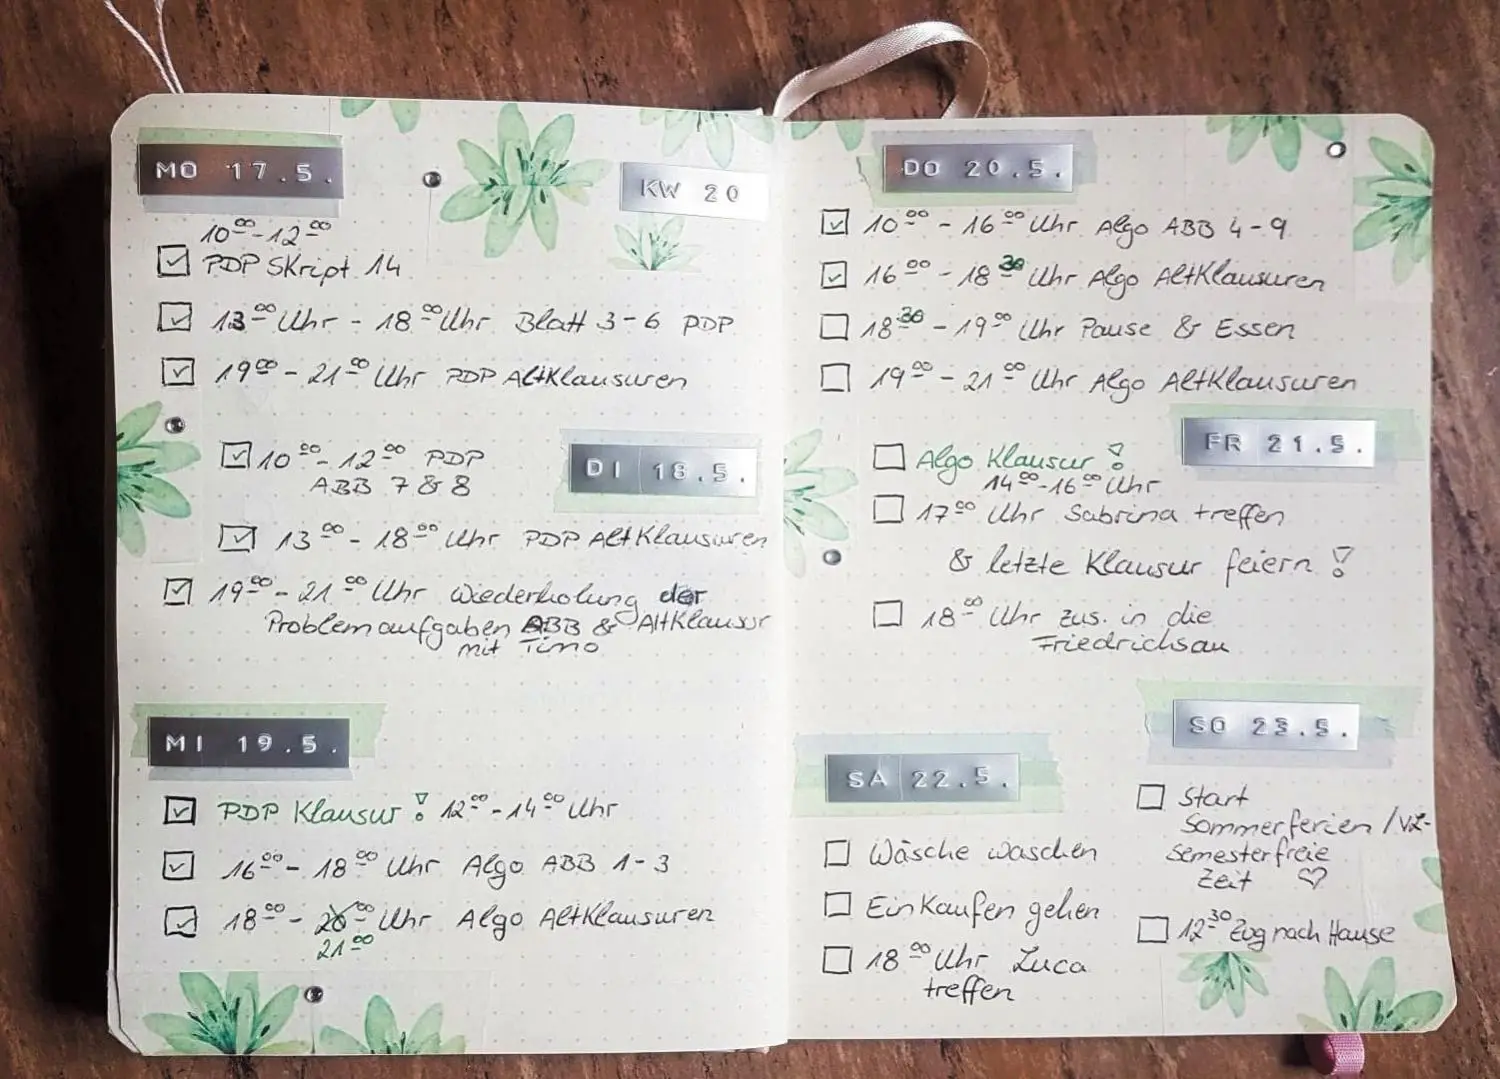 MO 17.5.
KW 20
10⁰⁰-12⁰⁰
PDP Skript 14
13⁰⁰ Uhr - 18⁰⁰ Uhr Blatt 3-6 PDP
19⁰⁰ - 21⁰⁰ Uhr PDP Altklausuren
DI 18.5.
10⁰⁰ - 12⁰⁰ PDP
ABB 7 & 8
13⁰⁰ - 18⁰⁰ Uhr PDP Altklausuren
19⁰⁰ - 21⁰⁰ Uhr Wiederholung der
Problemaufgaben ABB & Altklausur
mit Timo
MI 19.5.
PDP Klausur! 12⁰⁰ - 14⁰⁰ Uhr
16⁰⁰ - 18⁰⁰ Uhr Algo ABB 1-3
18⁰⁰ - 20⁰⁰ Uhr Algo Altklausuren
21⁰⁰
DO 20.5.
10⁰⁰ - 16⁰⁰ Uhr Algo ABB 4-9
16⁰⁰ - 18³⁰ Uhr Algo Altklausuren
18³⁰ - 19⁰⁰ Uhr Pause & Essen
19⁰⁰ - 21⁰⁰ Uhr Algo Altklausuren
FR 21.5.
Algo Klausur!
14⁰⁰-16⁰⁰ Uhr
17⁰⁰ Uhr Sabrina treffen
& letzte Klausur feiern!
18⁰⁰ Uhr zus. in die
Friedrichsau
SA 22.5.
Wäsche waschen
Einkaufen gehen
18⁰⁰ Uhr Luca
treffen
SO 23.5.
Start
Sommerferien / VL-
Semesterfreie
Zeit ♡
12³⁰ Zug nach Hause